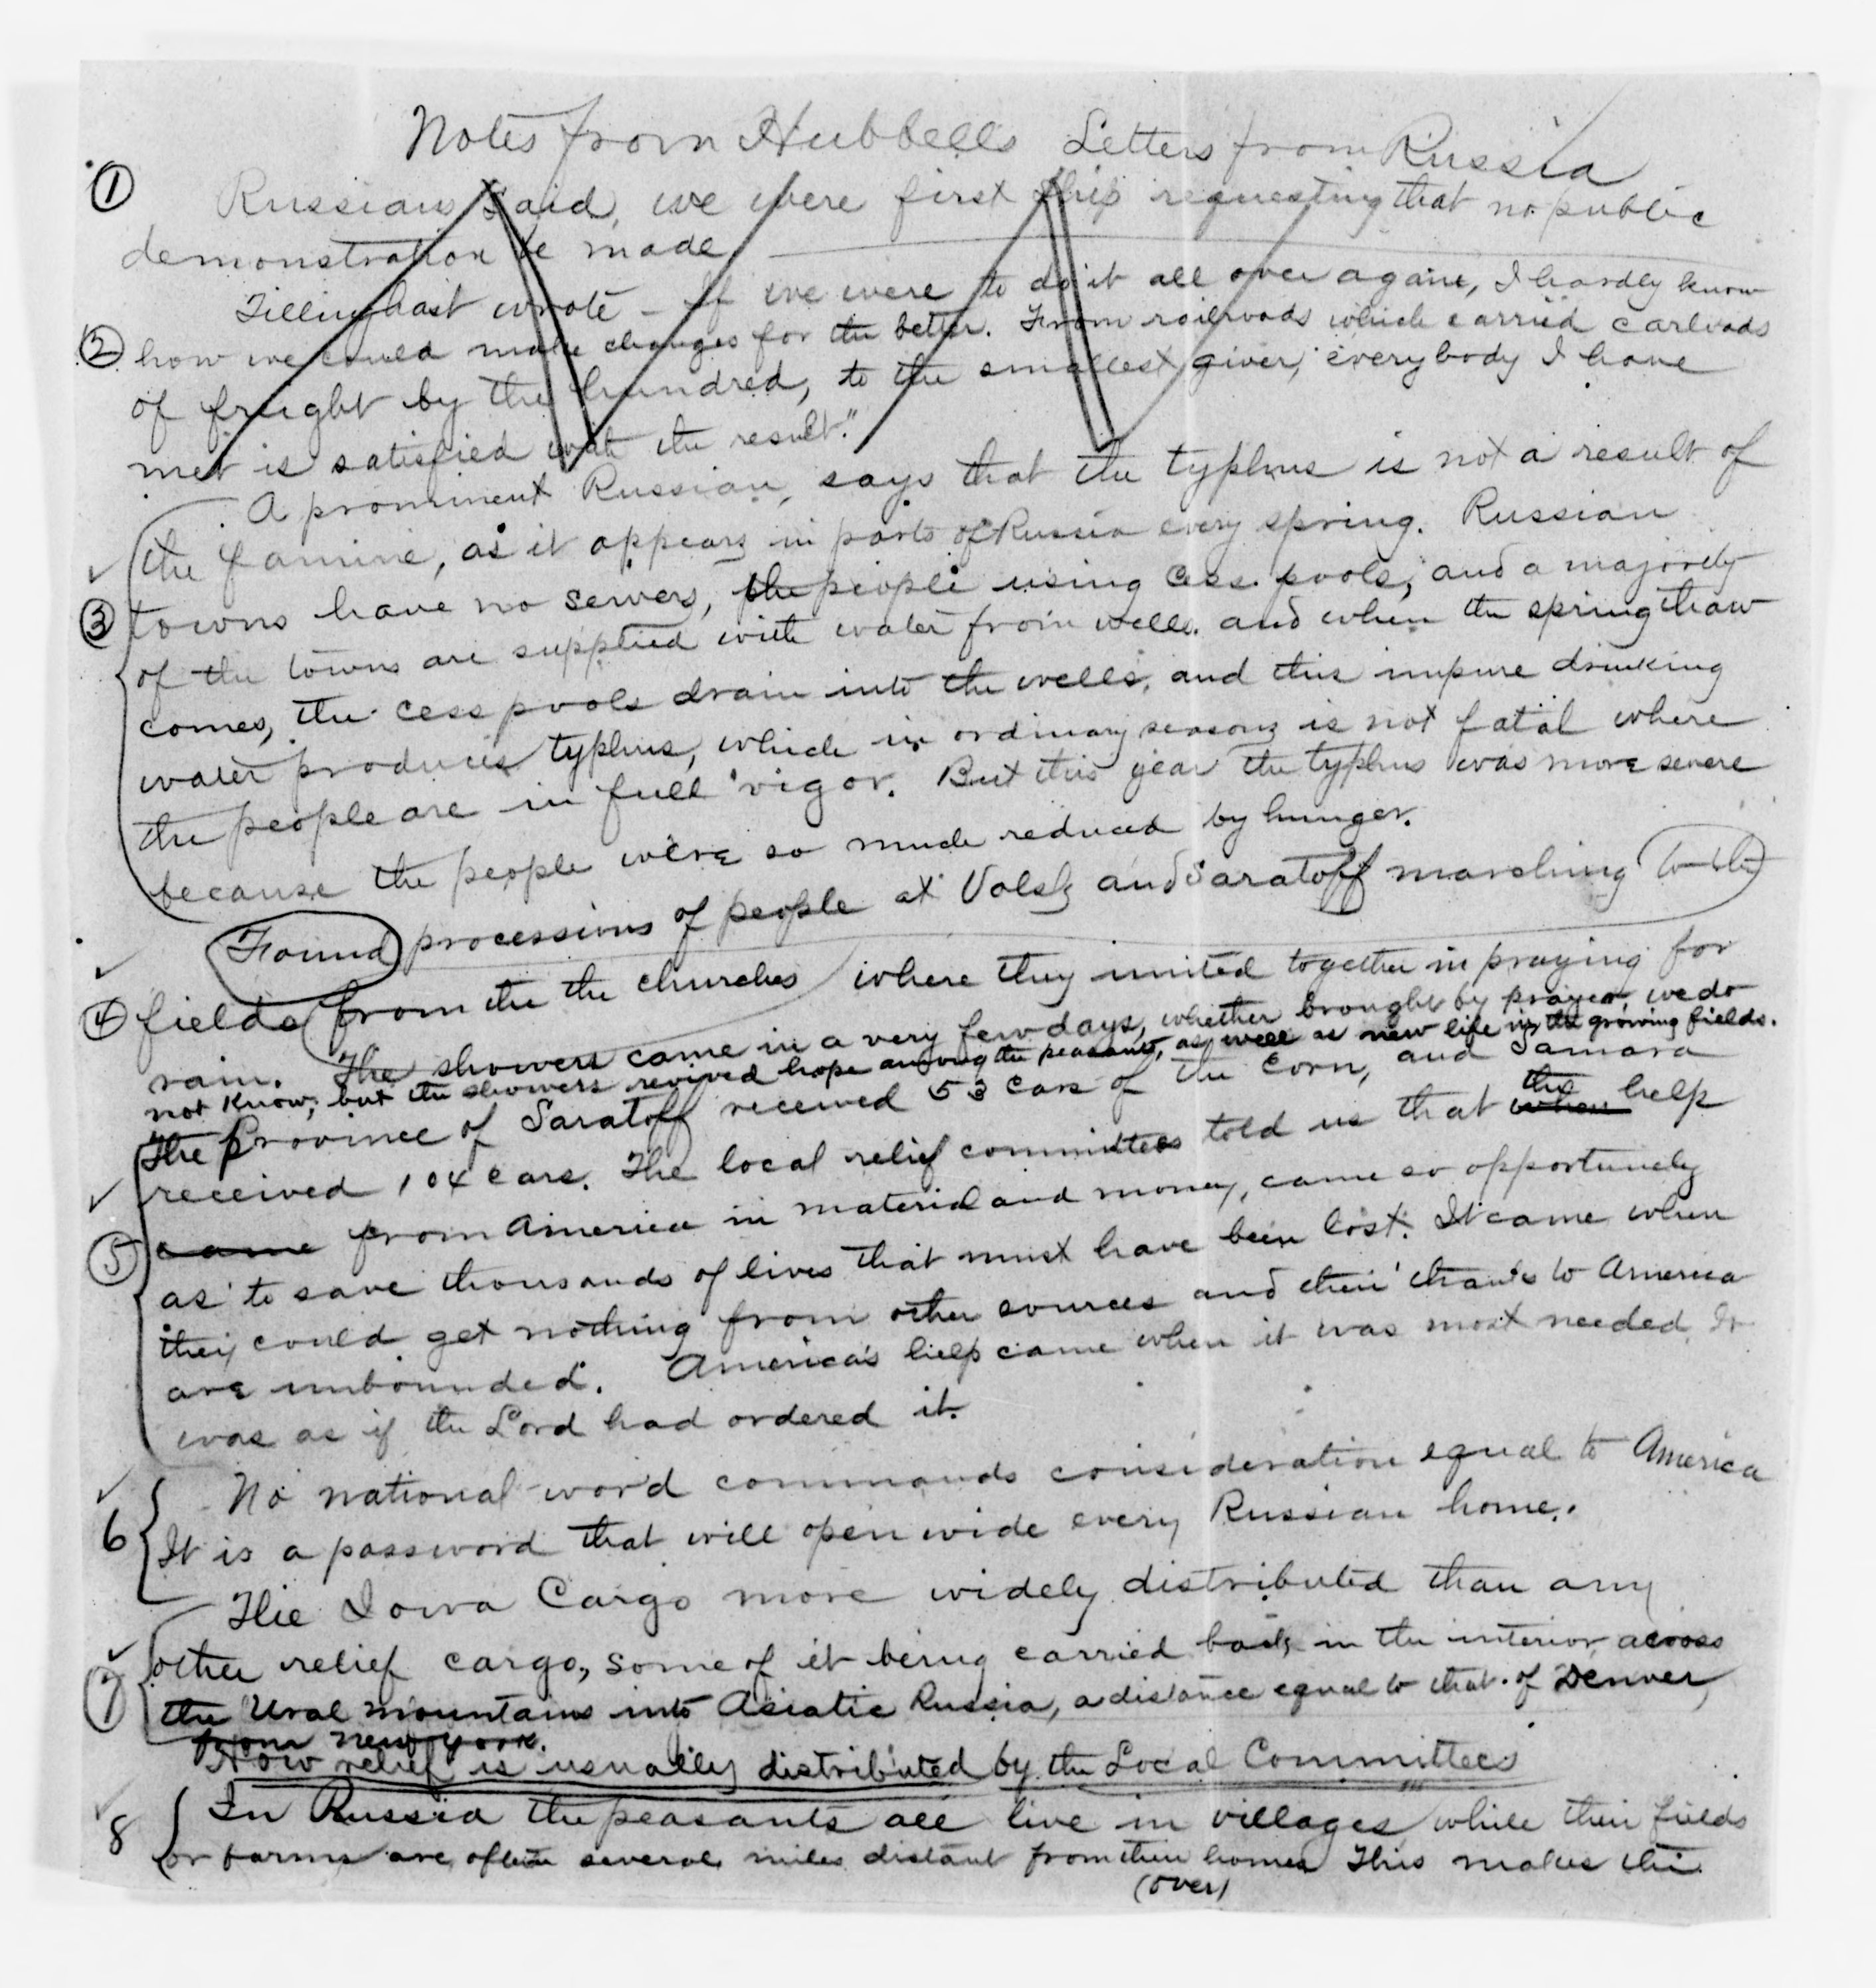 Notes from Hubbells Letters from Russia
① Russians said, we were first ship requesting that no public
demonstration be made
Tillinghast wrote - If we were to do it all over again, I hardly know
② how we could make changes for the better. From railroads which carried carloads
of freight by the hundred, to the smallest giver, everybody I have
met is satisfied with the result."
A prominent Russian, says that the typhus is not a result of
the famine, as it appears in parts of Russia every spring. Russian
③ towns have no sewers, the people using cess pools, and a majority
of the towns are supplied with water from wells. and when the spring thaw
comes, the cess pools drain into the wells, and this impure drinking
water produces typhus, which in ordinary seasons is not fatal where
the people are in full vigor. But this year the typhus was more severe
because the people were so much reduced by hunger.
Found processions of people at Volsk and Saratoff marching to the
④ fields from the the churches where they united together in praying for
rain. The showers came in a very few days, whether brought by prayer we do
not know, but the showers revived hope among the peasants, as well as new life in the growing fields.
The Province of Saratoff received 53 cars of the Corn, and Samara
received 104 cars. The local relief committees told us that when the help
⑤ came from America in material and money, came so opportunely
as to save thousands of lives that must have been lost. It came when
they could get nothing from other sources and their thanks to America
are unbounded. America's help came when it was most needed. It
was as if the Lord had ordered it.
No national word commands consideration equal to America
6 It is a password that will open wide every Russian home.
The Iowa Cargo more widely distributed than any
other relief cargo, some of it being carried back in the interior, across
⑦ the Ural Mountains into Asiatic Russia, a distance equal to that of Denver,
from New York.
How relief is usually distributed by the Local Committees
8 In Russia the peasants all live in villages while their fields
or farms are often several miles distant from their homes This makes the
(over)